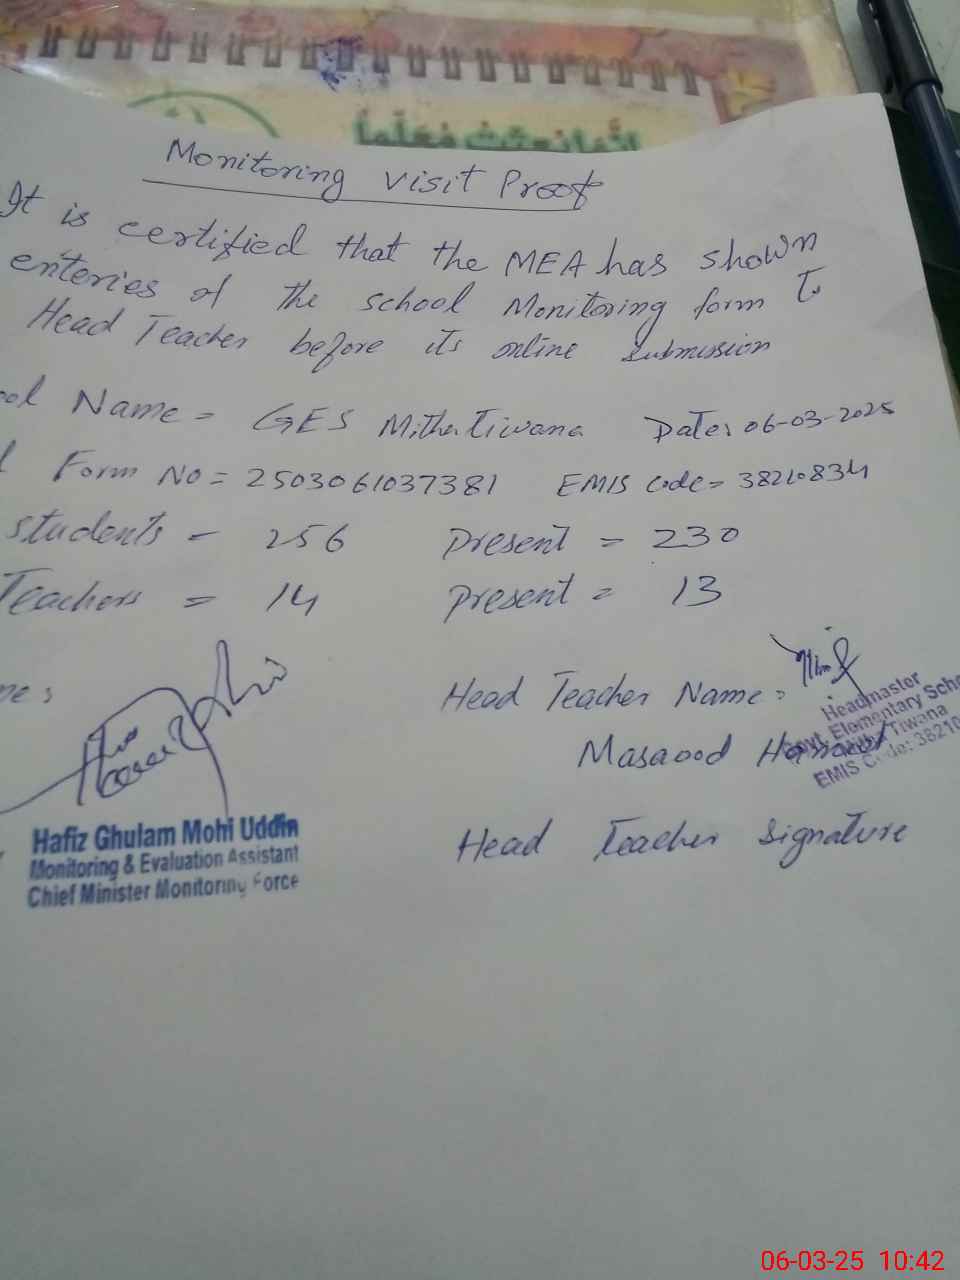 إنما بعثت معلما
Monitoring visit Proof
It is certified that the MEA has shown
enteries of the school Monitoring form to
Head Teacher before its online submission
ool Name = GES Mitha Tiwana Date: 06-03-2025
l Form No = 2503061037381 EMIS code = 38210834
students = 256 present = 230
Teachers = 14 present = 13
me: Head Teacher Name =
Headmaster
Govt. Elementary Scho
Mitha Tiwana
EMIS Code: 38210
Masaood Hassan
Hafiz Ghulam Mohi Uddin
Monitoring & Evaluation Assistant
Chief Minister Monitoring Force
Head Teacher Signature
06-03-25 10:42